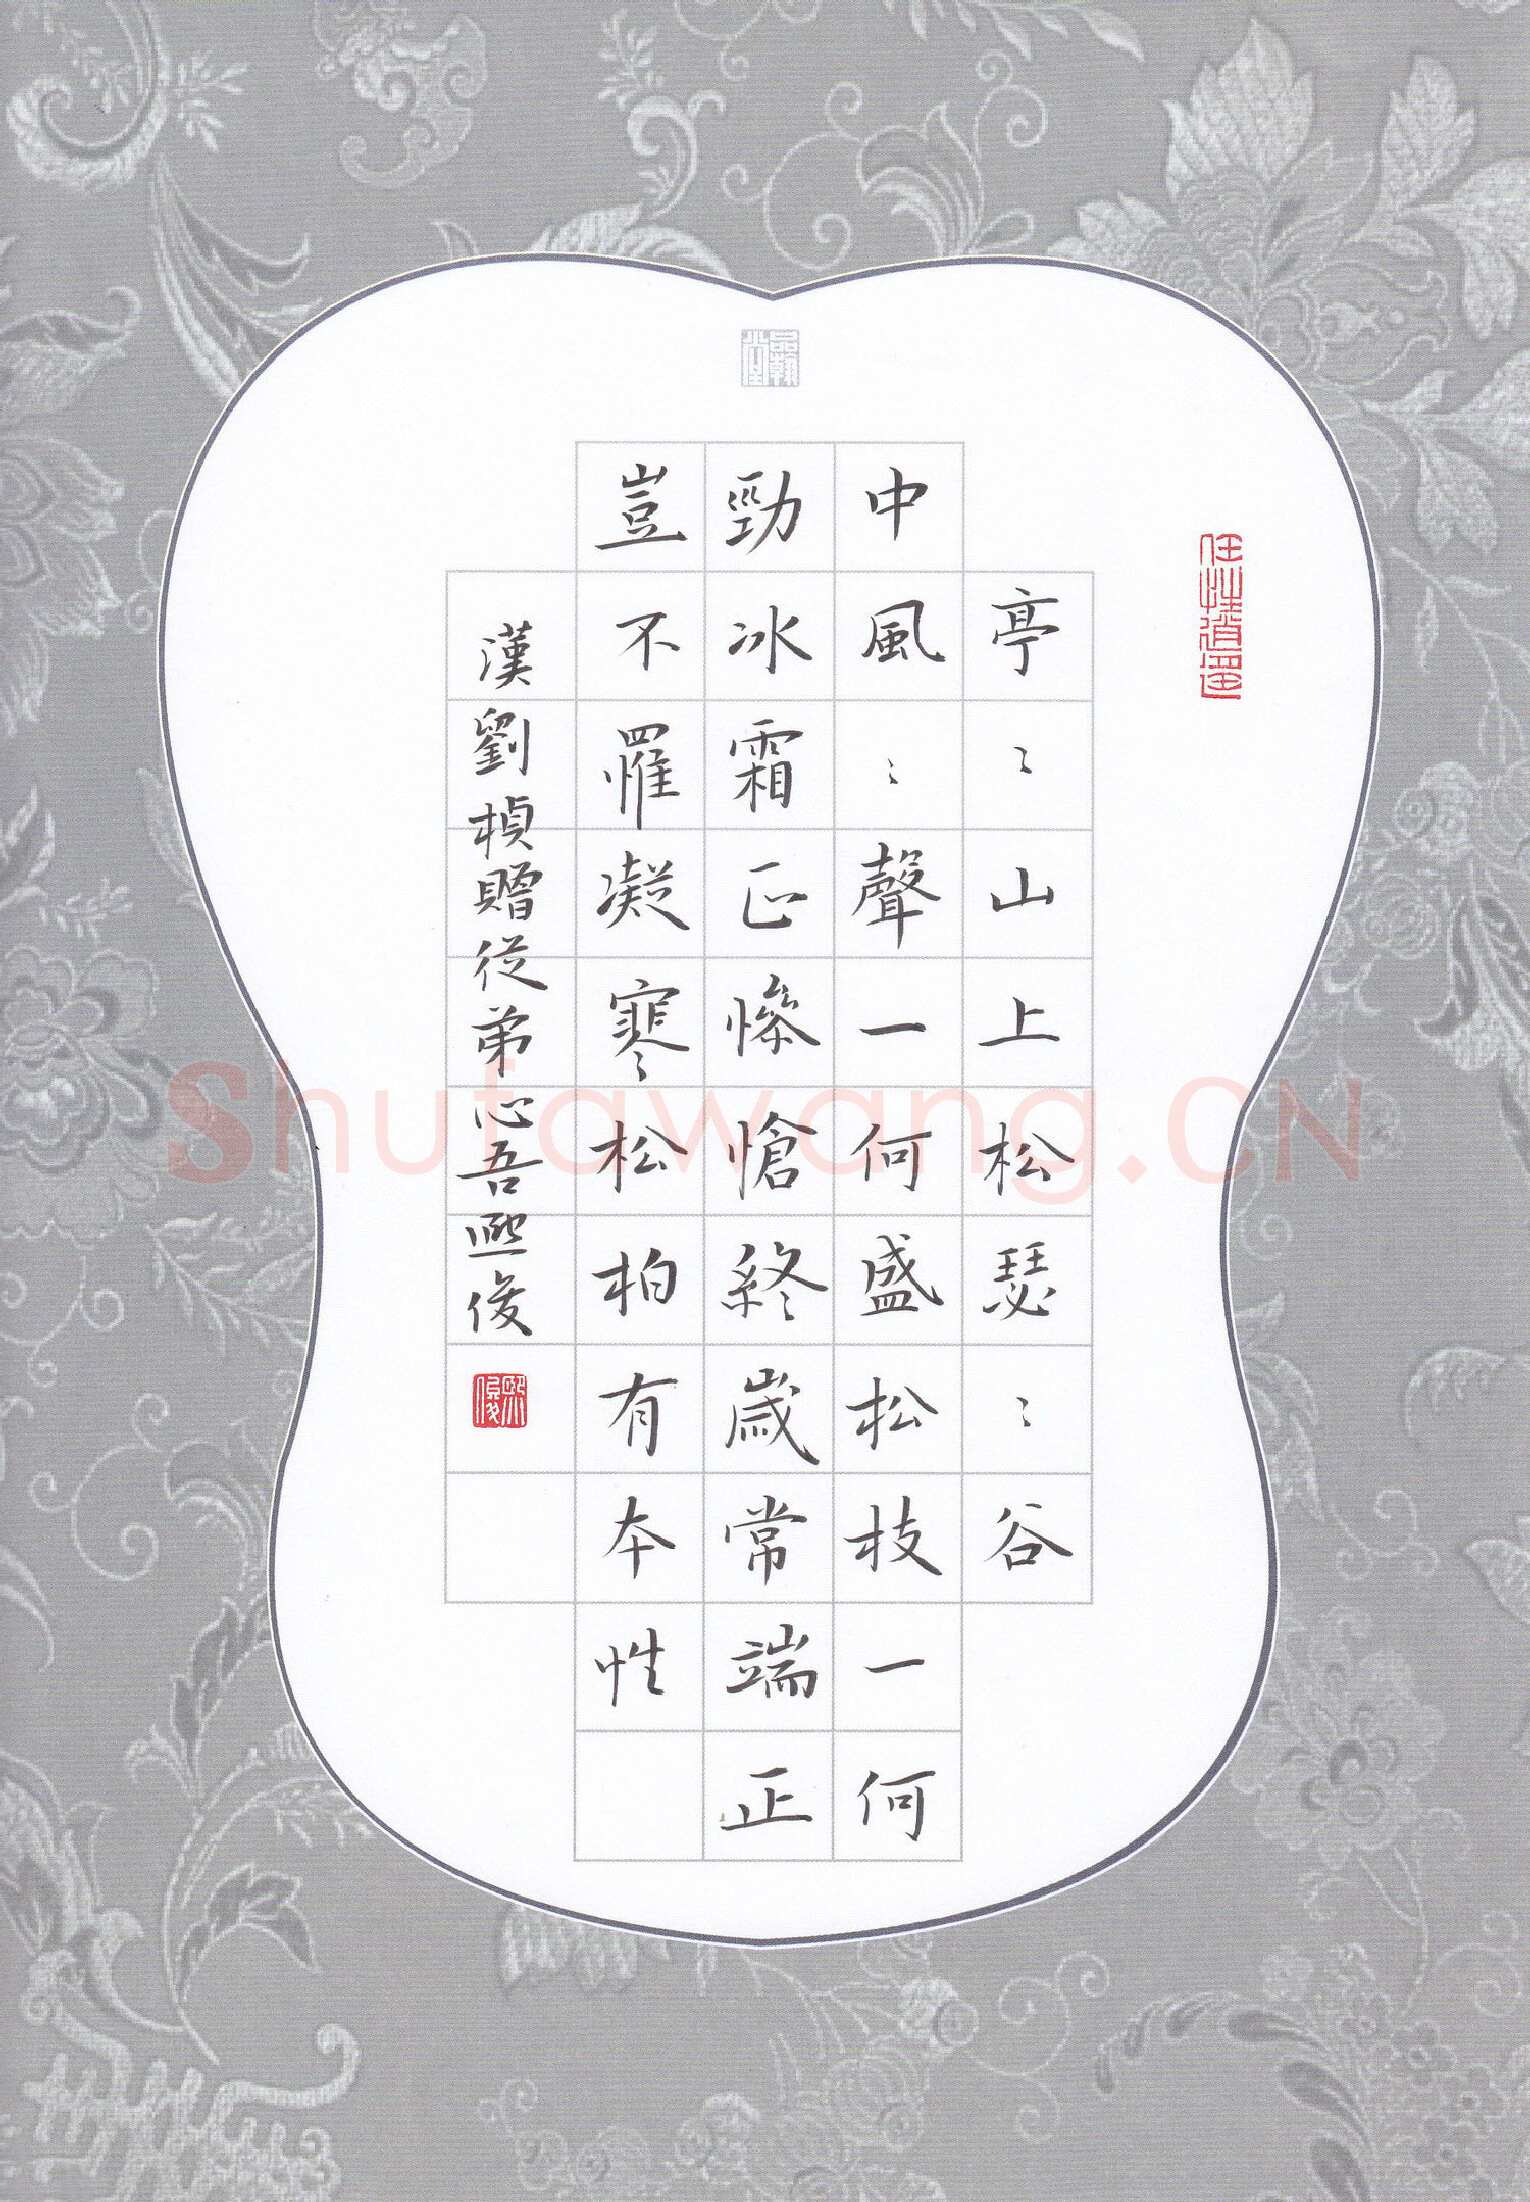 任性逍遙
亭〻山上松瑟〻谷
中風〻聲一何盛松枝一何
勁冰霜正慘愴終歲常端正
豈不罹凝寒松柏有本性
漢劉楨贈從弟心吾熙俊
熙俊
品翰堂
Shufawang.CN